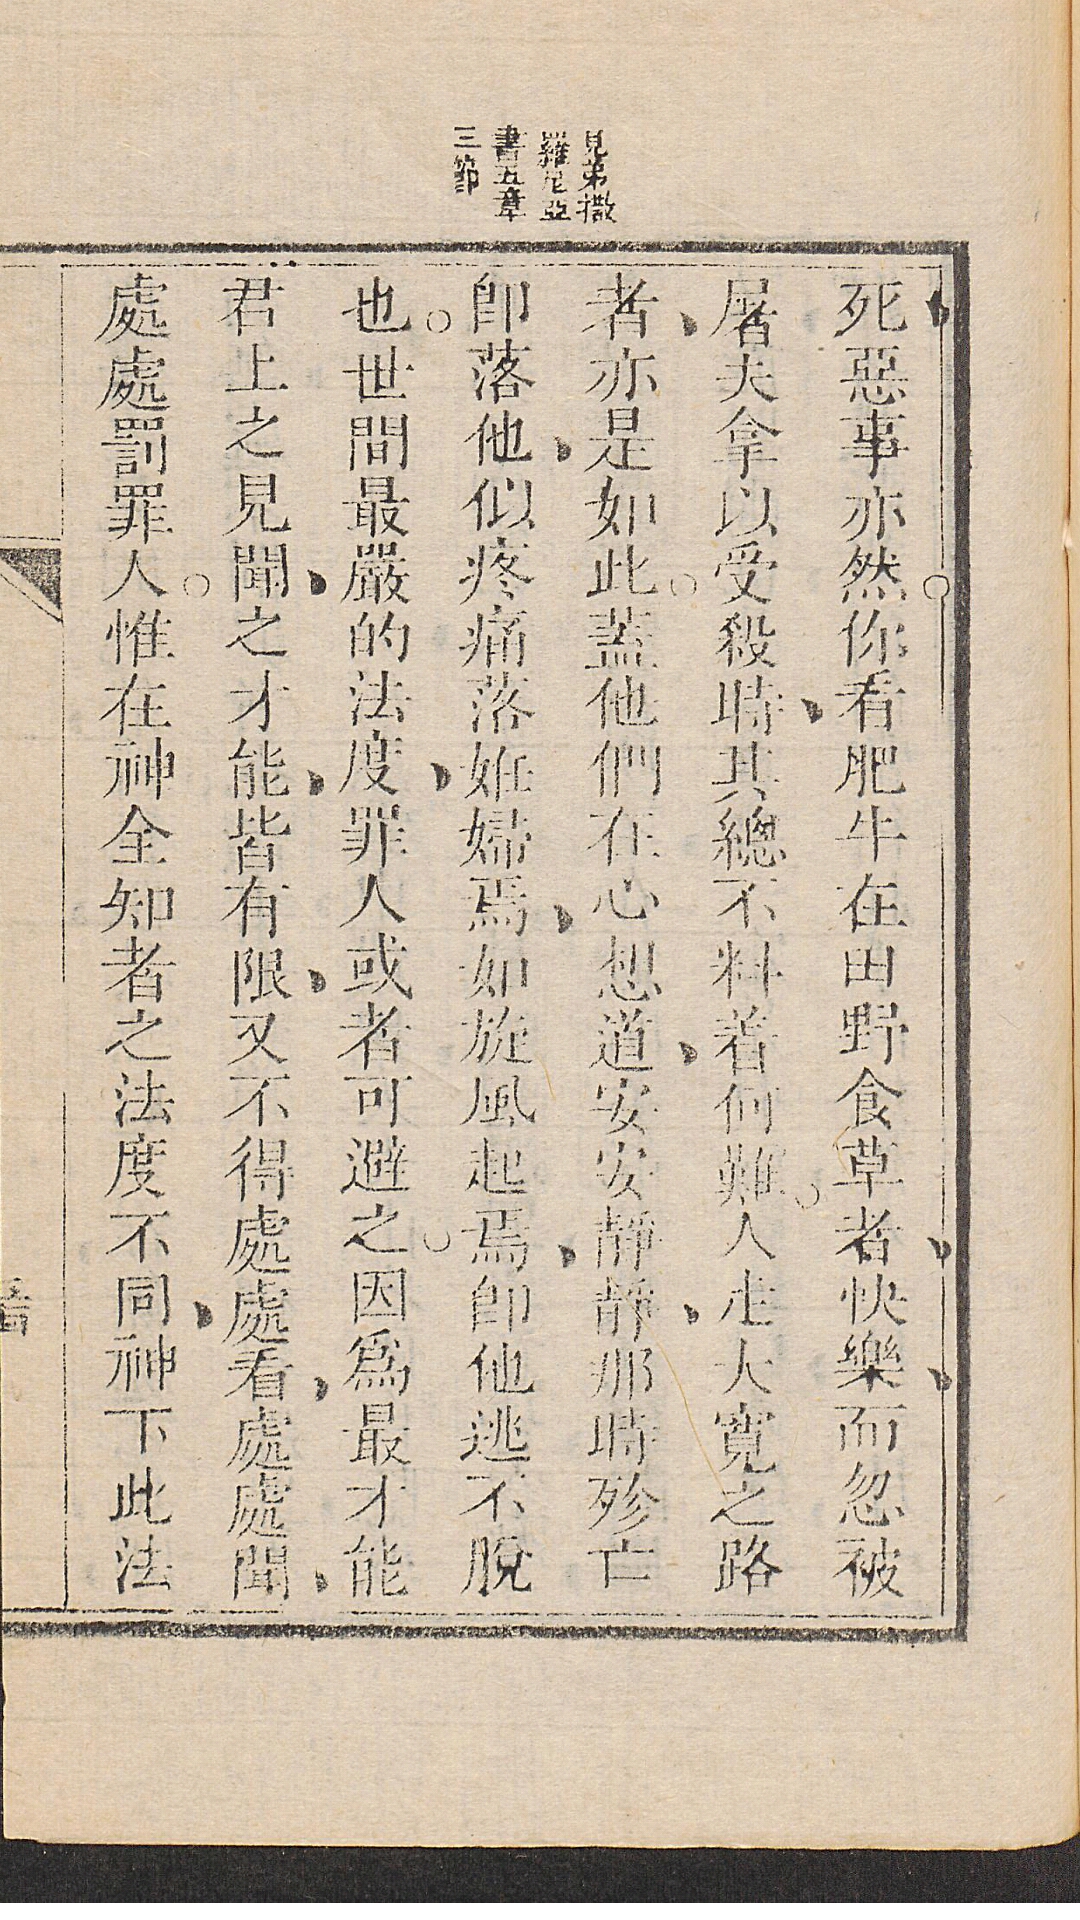 見弟撒
羅尼亞
書五章
三節
死、惡事亦然。你看肥牛在田野食草者、快樂、而忽被
屠夫拿以受殺時、其總不料着何難。人走大寬之路
者、亦是如此。蓋他們在心想道、安安靜靜、那時殄亡
即落他、似疼痛落姙婦焉、如旋風起焉、即他逃不脫
也。世間最嚴的法度、罪人或者可避之。因爲最才能
君上之見聞、之才能、皆有限、又不得處處看、處處聞、
處處罰罪人。惟在神全知者之法度不同、神下此法